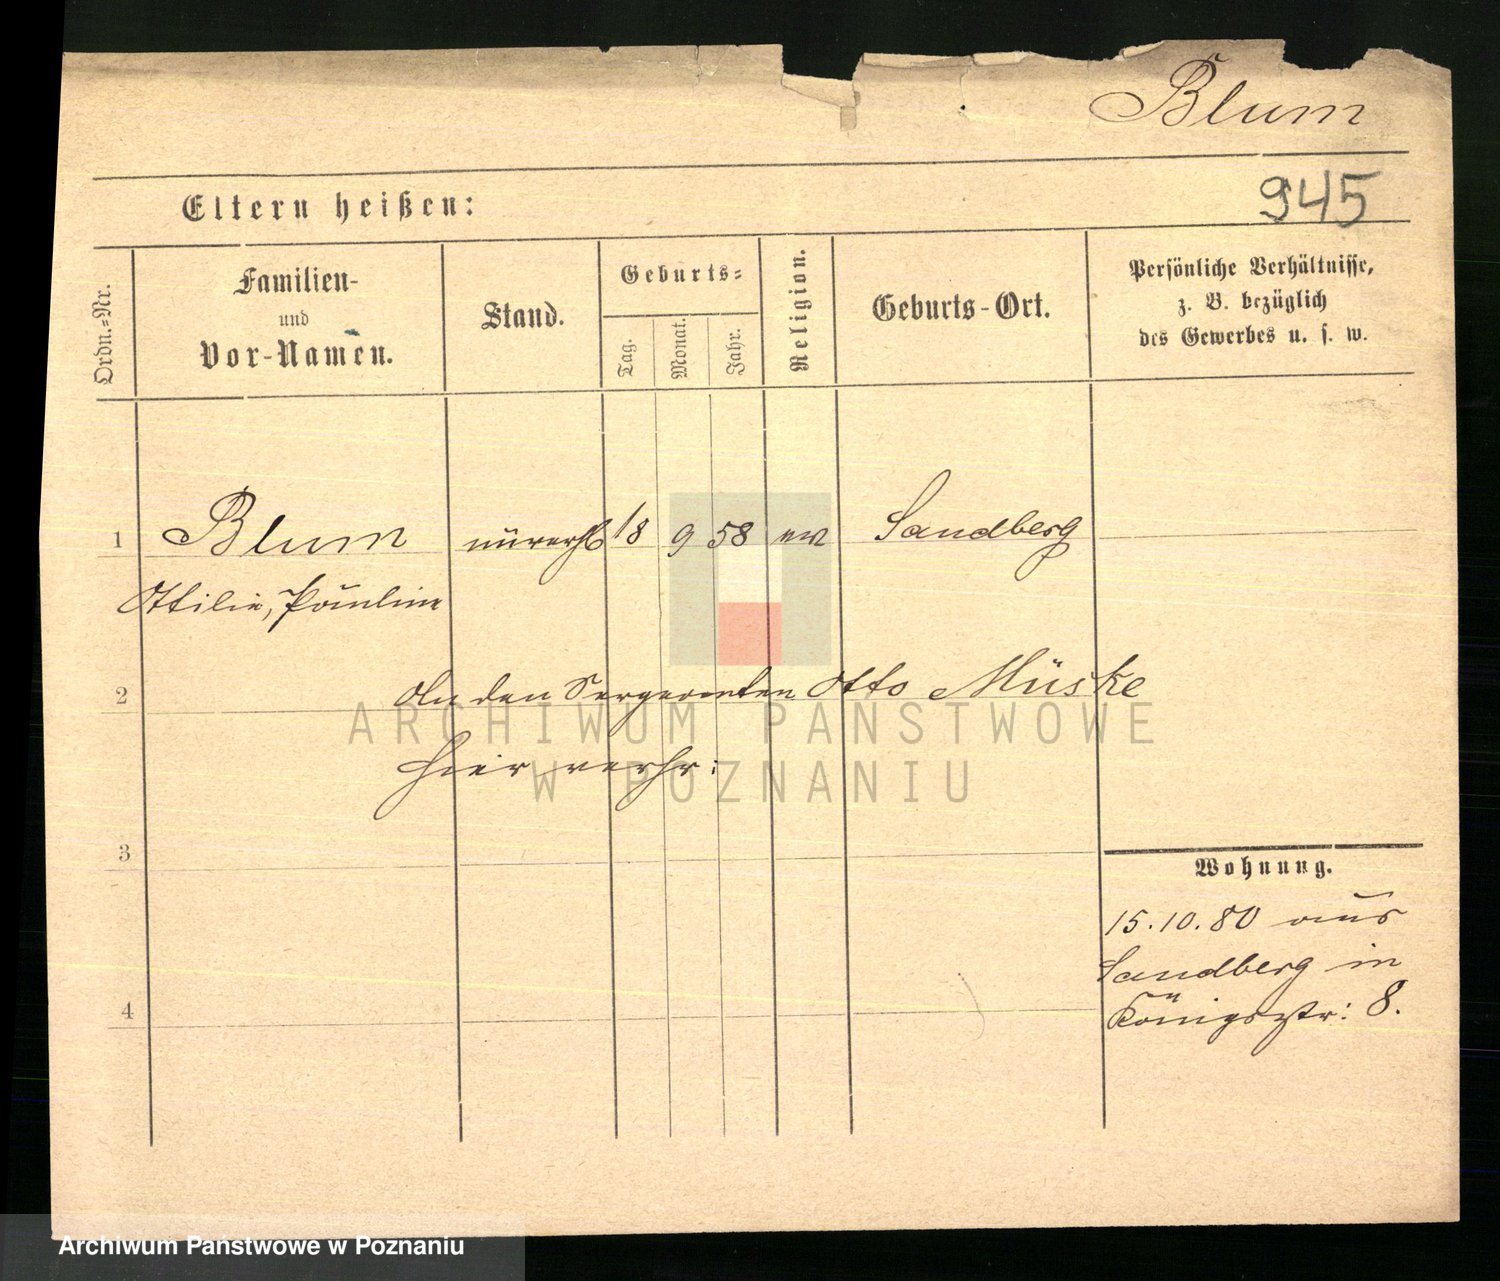 Blum
945
Eltern heißen:
Ordn.=Nr.
Familien-
und
Vor-Namen.
Stand.
Geburts=
Tag.
Monat.
Jahr.
Religion.
Geburts-Ort.
Persönliche Verhältnisse,
z. B. bezüglich
des Gewerbes u. s. w.
1 Blum unverh 18 9 58 ev Sandberg
Ottilie, Pauline
2 An den Sergeanten Otto Müske
hier verhr:
ARCHIWUM PAŃSTWOWE
W POZNANIU
3
Wohnung.
15.10.80 aus
Sandberg in
Königsstr: 8.
4
Archiwum Państwowe w Poznaniu